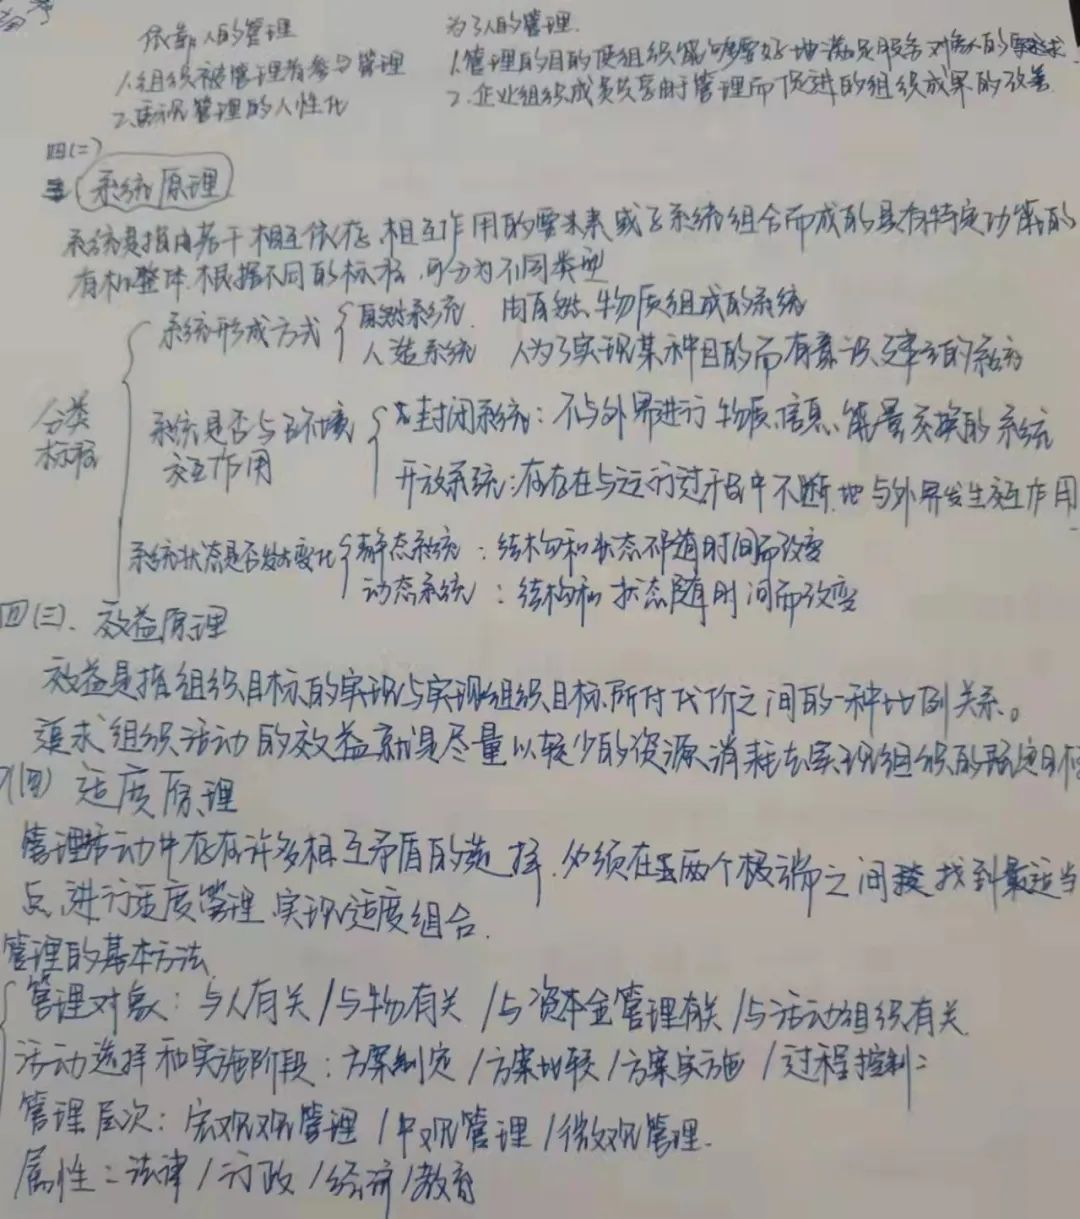 依靠人的管理 为了人的管理.
1.组织被管理者参与管理 1.管理的目的使组织能够更好地满足服务对象的要求.
2.重视管理的人性化 2.企业组织成员共享由于管理而促进的组织成果的改善
四(二)
系统原理
系统是指由若干相互依存,相互作用的要素或子系统组合而成的具有特定功能的
有机整体.根据不同的标准,可分为不同类型
分类标准
系统形成方式 自然系统 由自然物质组成的系统
人造系统 人为了实现某种目的而有意识建立的系统
系统是否与环境交互作用 封闭系统:不与外界进行物质、信息、能量交换的系统
开放系统:存在与运行过程中不断地与外界发生交互作用
系统状态是否发生变化 静态系统:结构和状态不随时间而改变
动态系统:结构和状态随时间而改变
四(三).效益原理
效益是指组织目标的实现与实现组织目标所付代价之间的一种比例关系。
追求组织活动的效益就是尽量以较少的资源消耗去实现组织的既定目标
(四) 适度原理
管理活动中存在许多相互矛盾的选择,必须在两个极端之间找到最适当
点,进行适度管理,实现适度组合.
管理的基本方法
管理对象:与人有关/与物有关/与资本金管理有关/与活动组织有关.
活动选择和实施阶段:方案制定/方案比较/方案实施/过程控制:
管理层次:宏观观管理/中观管理/微观管理.
属性:法律/行政/经济/教育